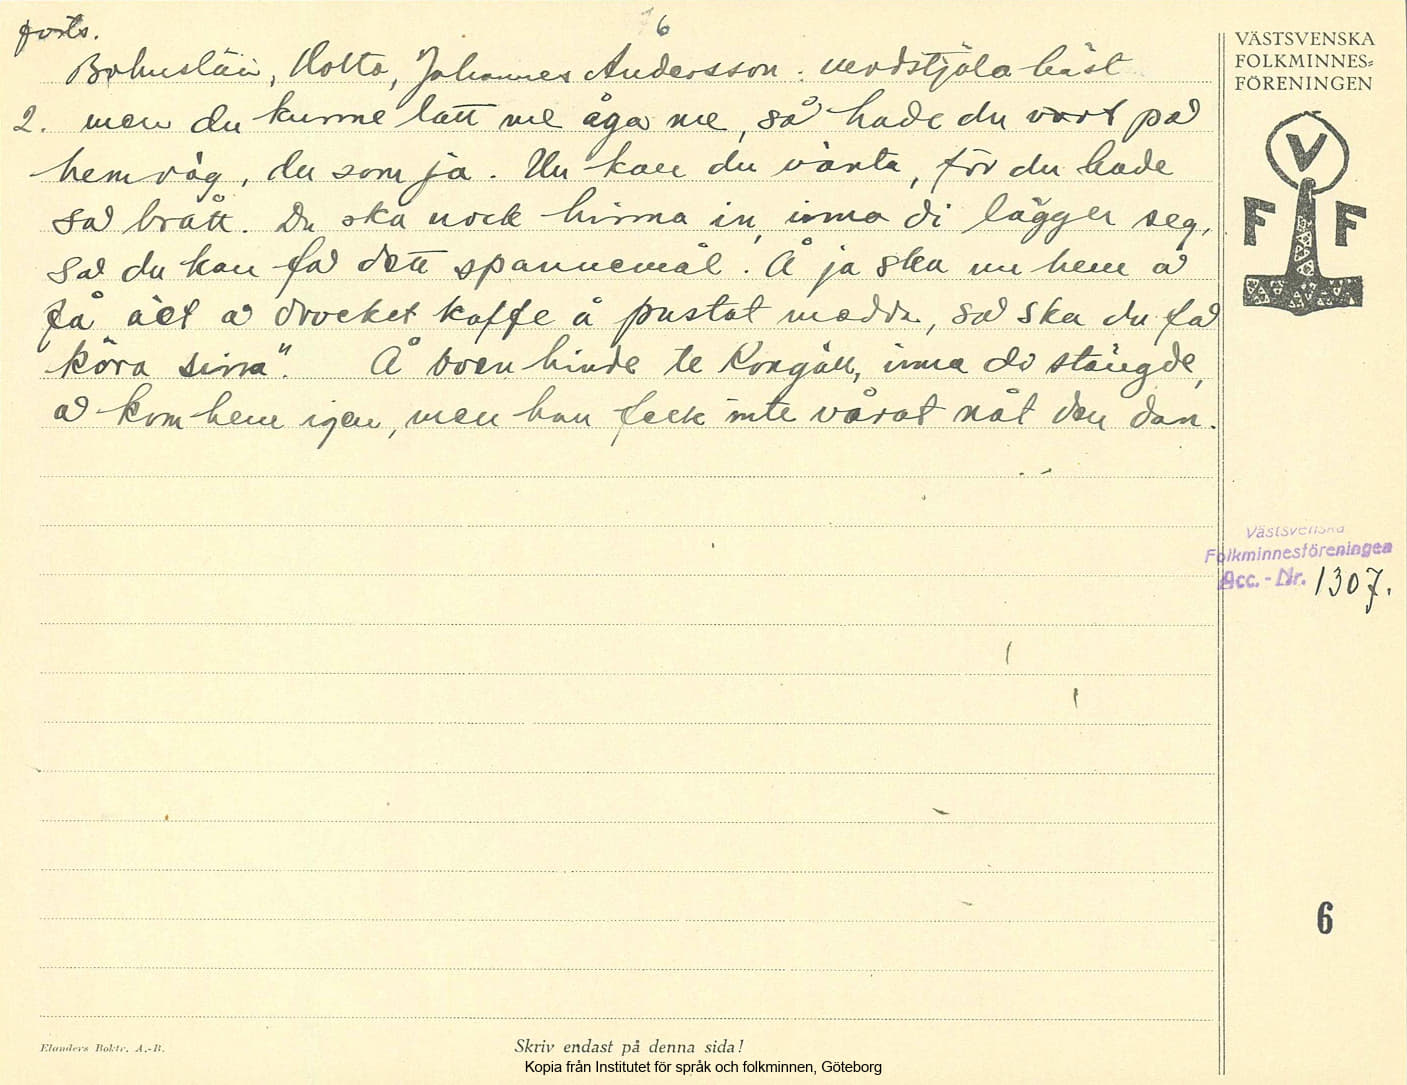 forts.
6
Bohuslän, Holta, Johannes Andersson. modstjäla häst
2. men du kunne latt me åga me, så hade du vart på
hemväg, du som ja. Nu kan du vänta, för du hade
så brått. Du ska nock hinna in, inna di lägger seg,
så du kan få dett spannemål. Å ja ska nu hem å
få äet å drocket kaffe å pustat mädda, så ska du få
köra sina". Å boen hinde te Kongäll, inna do stängde,
å kom hem igen, men han feck inte vårat nåt den dan.
VÄSTSVENSKA
FOLKMINNES=
FÖRENINGEN
V
F F
Västsvenska
Folkminnesföreningen
Acc. - Nr. 1307.
6
Elanders Boktr. A.-B.
Skriv endast på denna sida!
Kopia från Institutet för språk och folkminnen, Göteborg